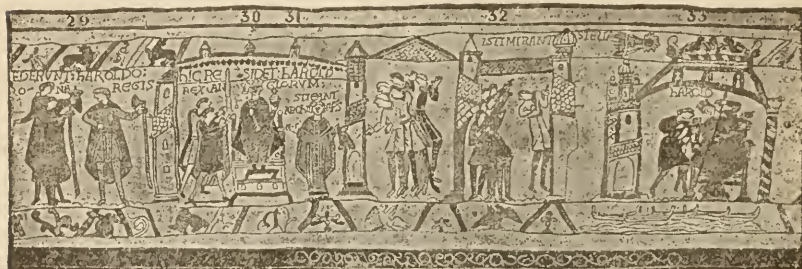 29 30 31 32 33
EDERVNT: hAROLDO:
RO NA REGIS
hIC RE SIDET: hAROLD
REX: AN GLORVM:
STIGANT
ISTI MIRANT STELL
hAROLD